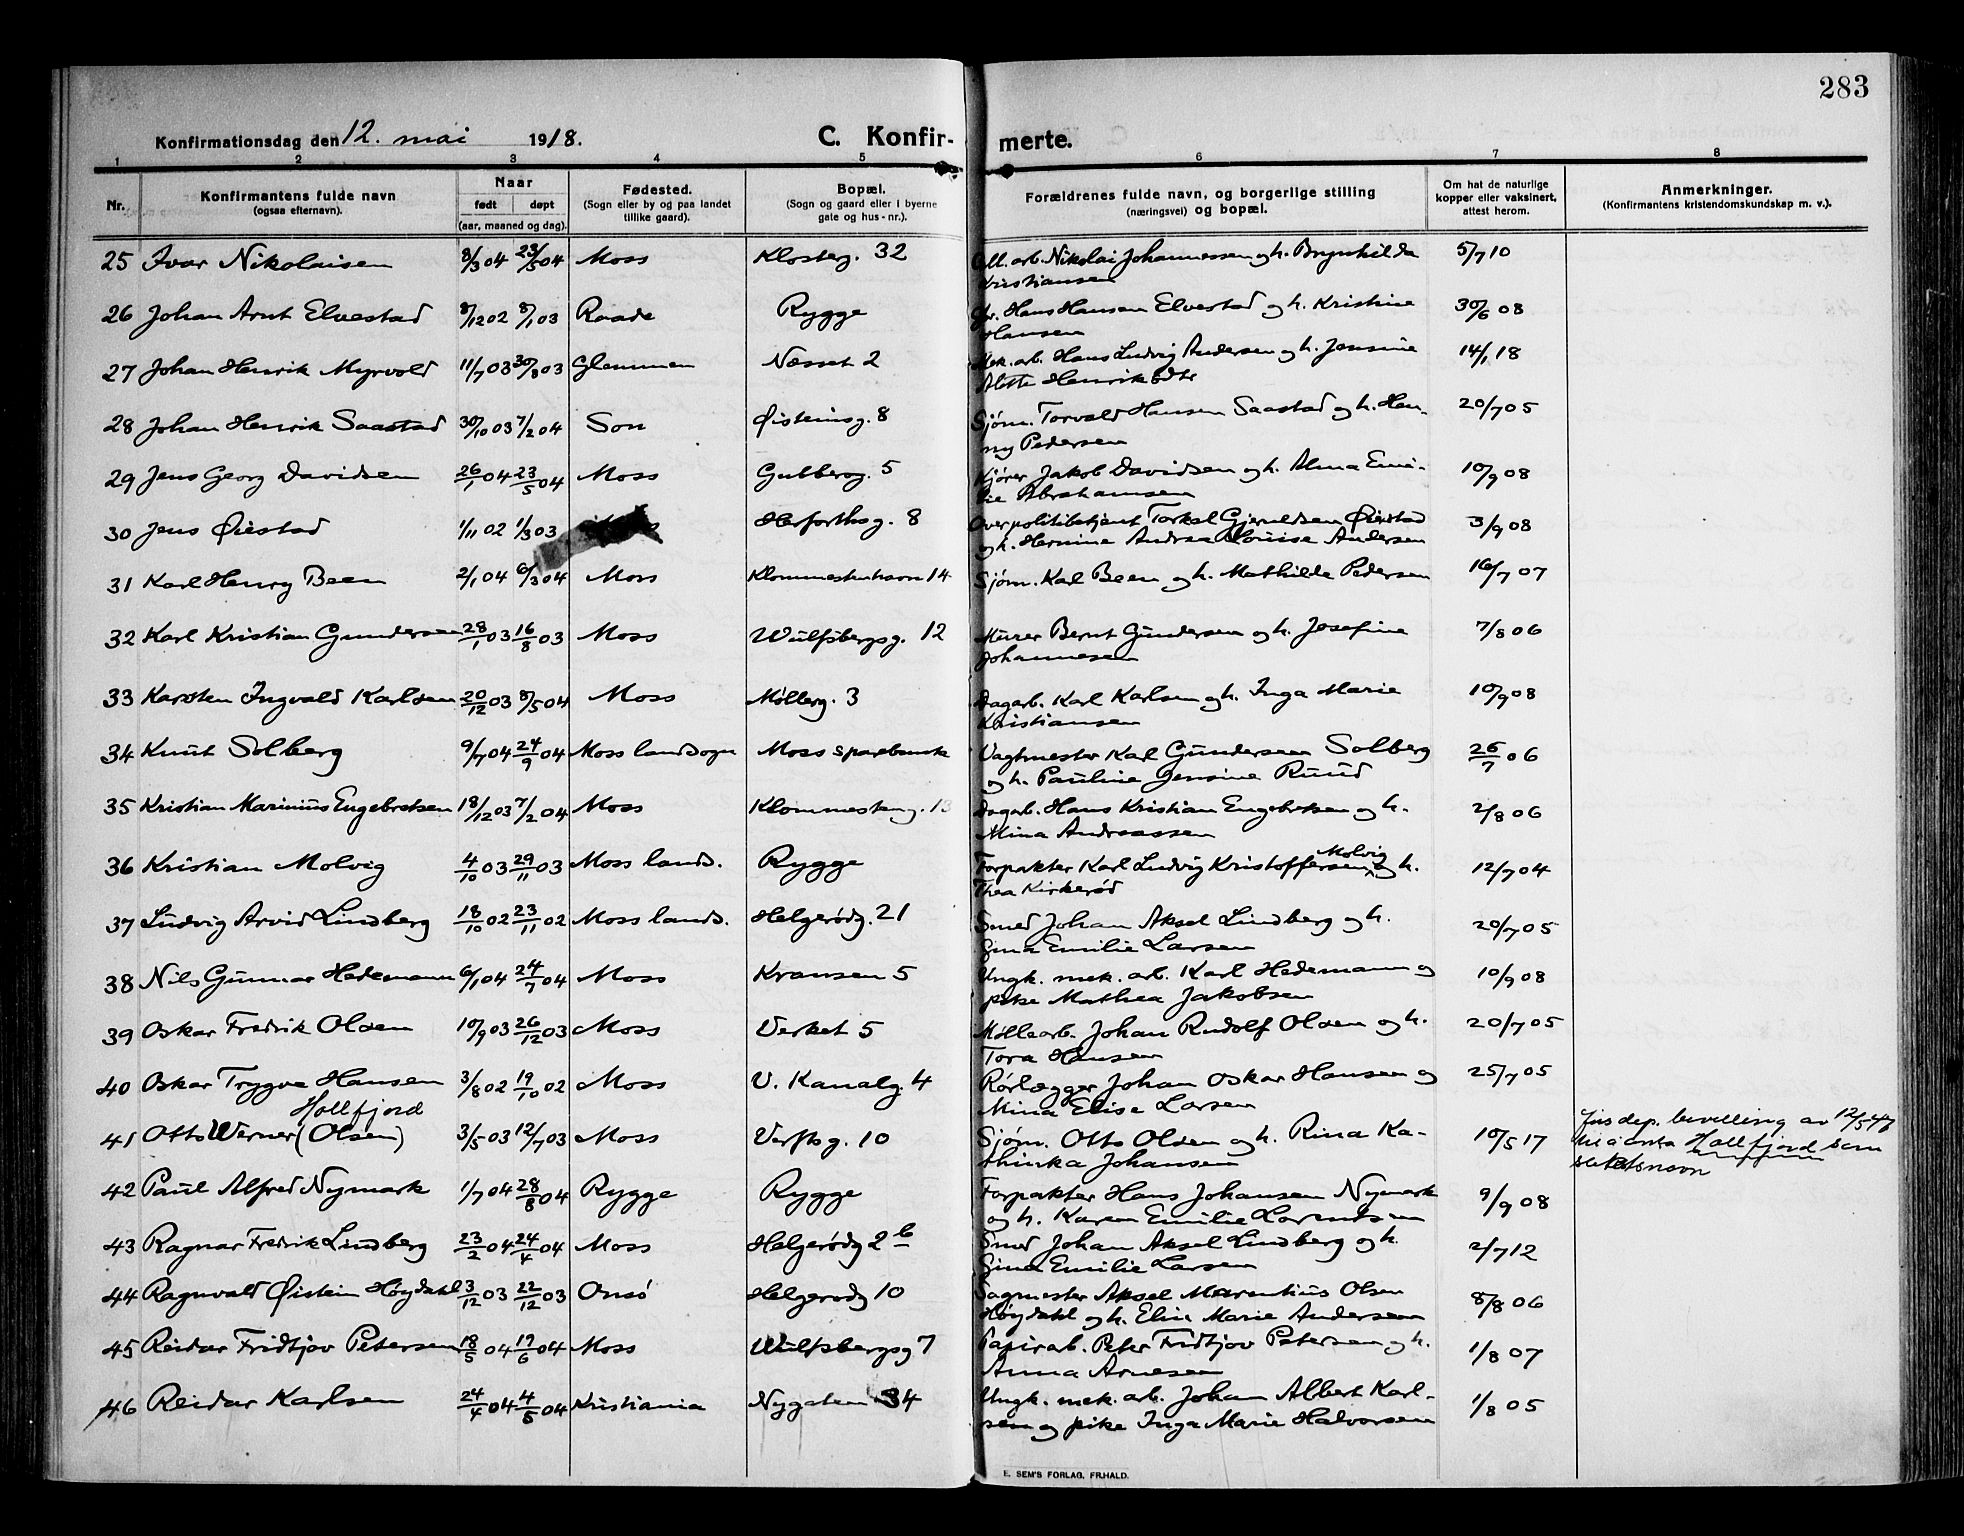 283
Konfirmationsdag den 12. mai 1918. C. Konfir- merte.
1 2 3 4 5 6 7 8
Nr. Konfirmantens fulde navn (ogsaa efternavn). Naar født døpt (aar, maaned og dag). Fødested. (Sogn eller by og paa landet tillike gaard). Bopæl. (Sogn og gaard eller i byerne gate og hus-nr.). Forældrenes fulde navn, og borgerlige stilling (næringsvei) og bopæl. Om hat de naturlige kopper eller vaksinert, attest herom. Anmerkninger. (Konfirmantens kristendomskundskap m. v.).
25 Ivar Nikolaisen 8/3 04 23/5 04 Moss Klosterg. 32 arb. Nikolai Johannessen og h. Brynhilda 5/7 10
Kristiansen
26 Johan Arnt Elvestad 8/12 02 8/1 03 Raade Rygge Hans Hansen Elvestad og h. Kristine 30/6 08
Hansen
27 Johan Henrik Myrvold 11/7 03 30/8 03 Glemmen Næsset 2 Mek. arb. Hans Ludvig Andersen og h. Jensine 14/1 18
Alette Henriksdtr
28 Johan Henrik Saastad 30/10 03 7/2 04 Son Øisteinsg. 8 Sjøm. Torvald Hansen Saastad og h. Hen-
ny Pedersen 20/7 05
29 Jens Georg Davidsen 26/1 04 23/5 04 Moss Gulbergg. 5 Kjører Jakob Davidsen og h. Alma Emi-
lie Abrahamsen 10/9 08
30 Jens Øiestad 1/11 02 1/3 03 Herforthsg. 8 Overpolitibetjent Torkel Gjeruldsen Øiestad 3/9 08
og h. Hermine Andrea Louise Andersen
31 Karl Henry Been 2/1 04 6/3 04 Moss Klommestenhavn 14 Sjøm. Karl Been og h. Mathilde Pedersen 16/7 07
32 Karl Kristian Gundersen 28/1 03 16/8 03 Moss Wulfsbergsg. 12 Murer Bernt Gundersen og h. Josefine 7/8 06
Johannesen
33 Karsten Ingvald Karlsen 20/12 03 8/5 04 Moss Møllerg. 3 Dagarb. Karl Karlsen og h. Inga Marie 10/9 08
Kristiansen
34 Knut Solberg 9/7 04 24/9 04 Moss landsogn Moss sparebank Vagtmester Karl Gundersen Solberg 26/7 06
og h. Pauline Jensine Ruud
35 Kristian Marinius Engebretsen 18/12 03 7/2 04 Moss Klommesteng. 13 Dagarb. Hans Kristian Engebretsen og h. 2/8 06
Mina Andreassen
36 Kristian Molvig 4/10 03 29/11 03 Moss lands. Rygge Forpakter Karl Ludvig Kristoffersen Molvig og h. 12/7 04
Thea Kirkerød
37 Ludvig Arvid Lindberg 18/10 02 23/11 02 Moss lands. Helgerødg. 21 Smed Johan Aksel Lindberg og h. 20/7 05
Gina Emilie Larsen
38 Nils Gunnar Hedemann 6/1 04 24/7 04 Moss Kransen 5 Ungk. mek. arb. Karl Hedemann og 10/9 08
pike Mathea Jakobsen
39 Oskar Fredrik Olsen 10/9 03 26/12 03 Moss Verket 5 Møllearb. Johan Rudolf Olsen og h. 20/7 05
Tora Hansen
40 Oskar Trygve Hansen 3/8 02 19/10 02 Moss V. Kanalg. 4 Rørlægger Johan Oskar Hansen og 25/7 05
Mina Elise Larsen
Hallfjord
41 Otto Werner (Olsen) 3/5 03 12/7 03 Moss Verftsg. 10 Sjøm. Otto Olsen og h. Rina Ka-
thinka Johansen 10/5 17 Jus dep. bevilling av 12/5 47
til å anta Hallfjord som
slektsnavn
42 Paul Alfred Nymark 1/7 04 28/8 04 Rygge Rygge Forpakter Hans Johansen Nymark 9/9 08
og h. Karen Emilie Larentsen
43 Ragnar Fredrik Lindberg 23/2 04 24/4 04 Moss Helgerødg 2 b Smed Johan Aksel Lindberg og h. 2/7 12
Gina Emilie Larsen
44 Ragnvald Øistein Høydahl 3/12 03 22/12 03 Onsø Helgerødg 10 Sagmester Aksel Marentius Olsen 8/8 06
Høydahl og h. Elin Marie Andersen
45 Reidar Fridtjov Petersen 18/5 04 19/6 04 Moss Wulfsbergsg 7 Papirarb. Peter Fridtjov Petersen og h. 1/8 07
Anna Arnesen
46 Reidar Karlsen 24/4 04 4/5 04 Kristiania Nygaten 34 Ungk. mek. arb. Johan Albert Karl-
sen og pike Inga Marie Halvorsen 1/8 05
E. SEM'S FORLAG, FR.HALD.